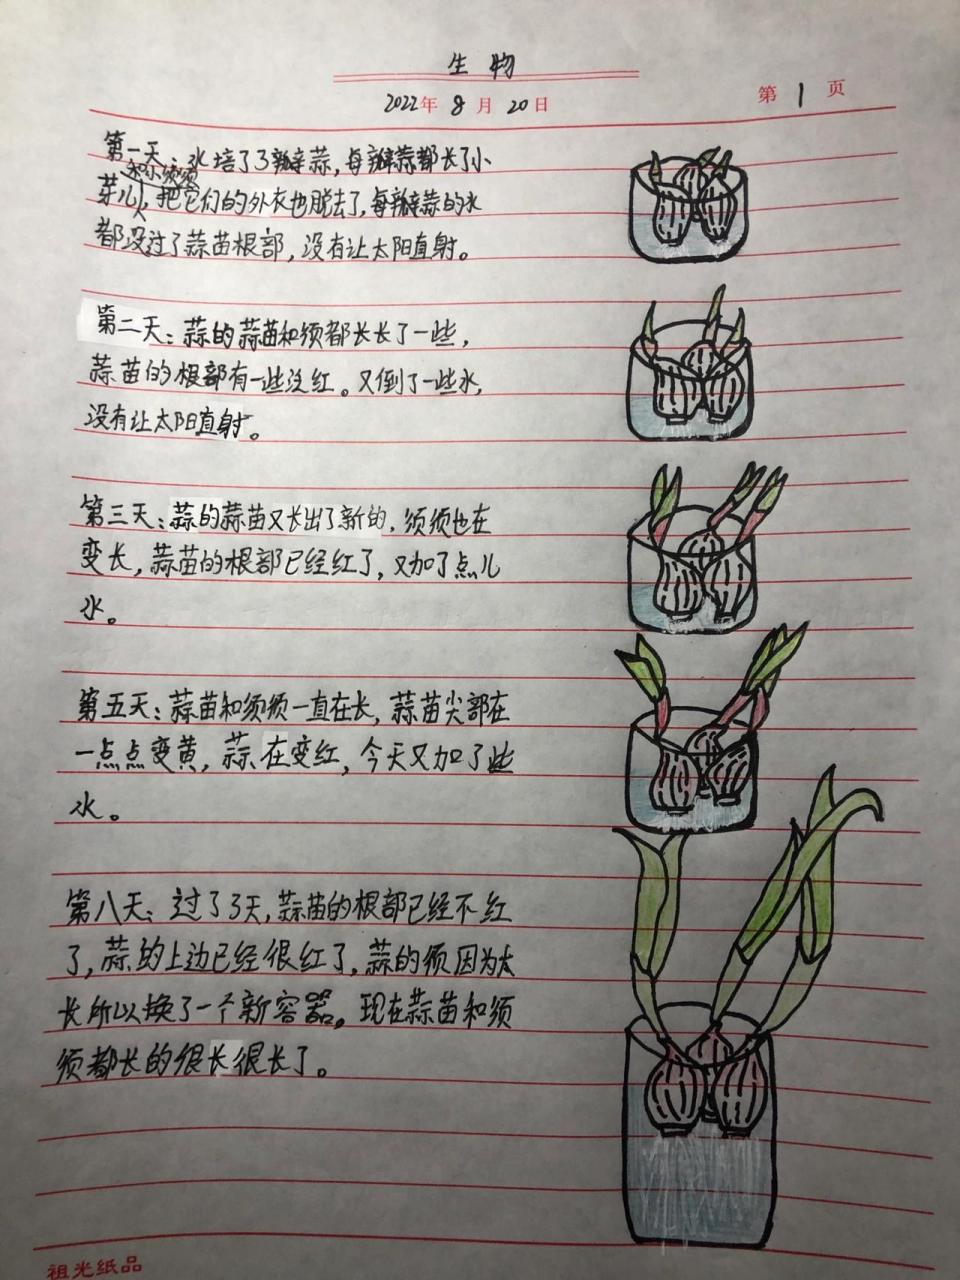 生物
2022年8月20日
第1页
第一天:水培了3瓣蒜,每瓣蒜都长了小
和小须须
芽儿,把它们的外衣也脱去了,每瓣蒜的水
都没过了蒜苗根部,没有让太阳直射。
第二天:蒜的蒜苗和须都长长了一些,
蒜苗的根部有一些泛红。又倒了一些水,
没有让太阳直射。
第三天:蒜的蒜苗又长出了新的,须须也在
变长,蒜苗的根部已经红了,又加了点儿
水。
第五天:蒜苗和须须一直在长,蒜苗尖部在
一点点变黄,蒜在变红,今天又加了些
水。
第八天:过了3天,蒜苗的根部已经不红
了,蒜的上边已经很红了,蒜的须因为太
长所以换了一个新容器。现在蒜苗和须
须都长的很长很长了。
祖光纸品